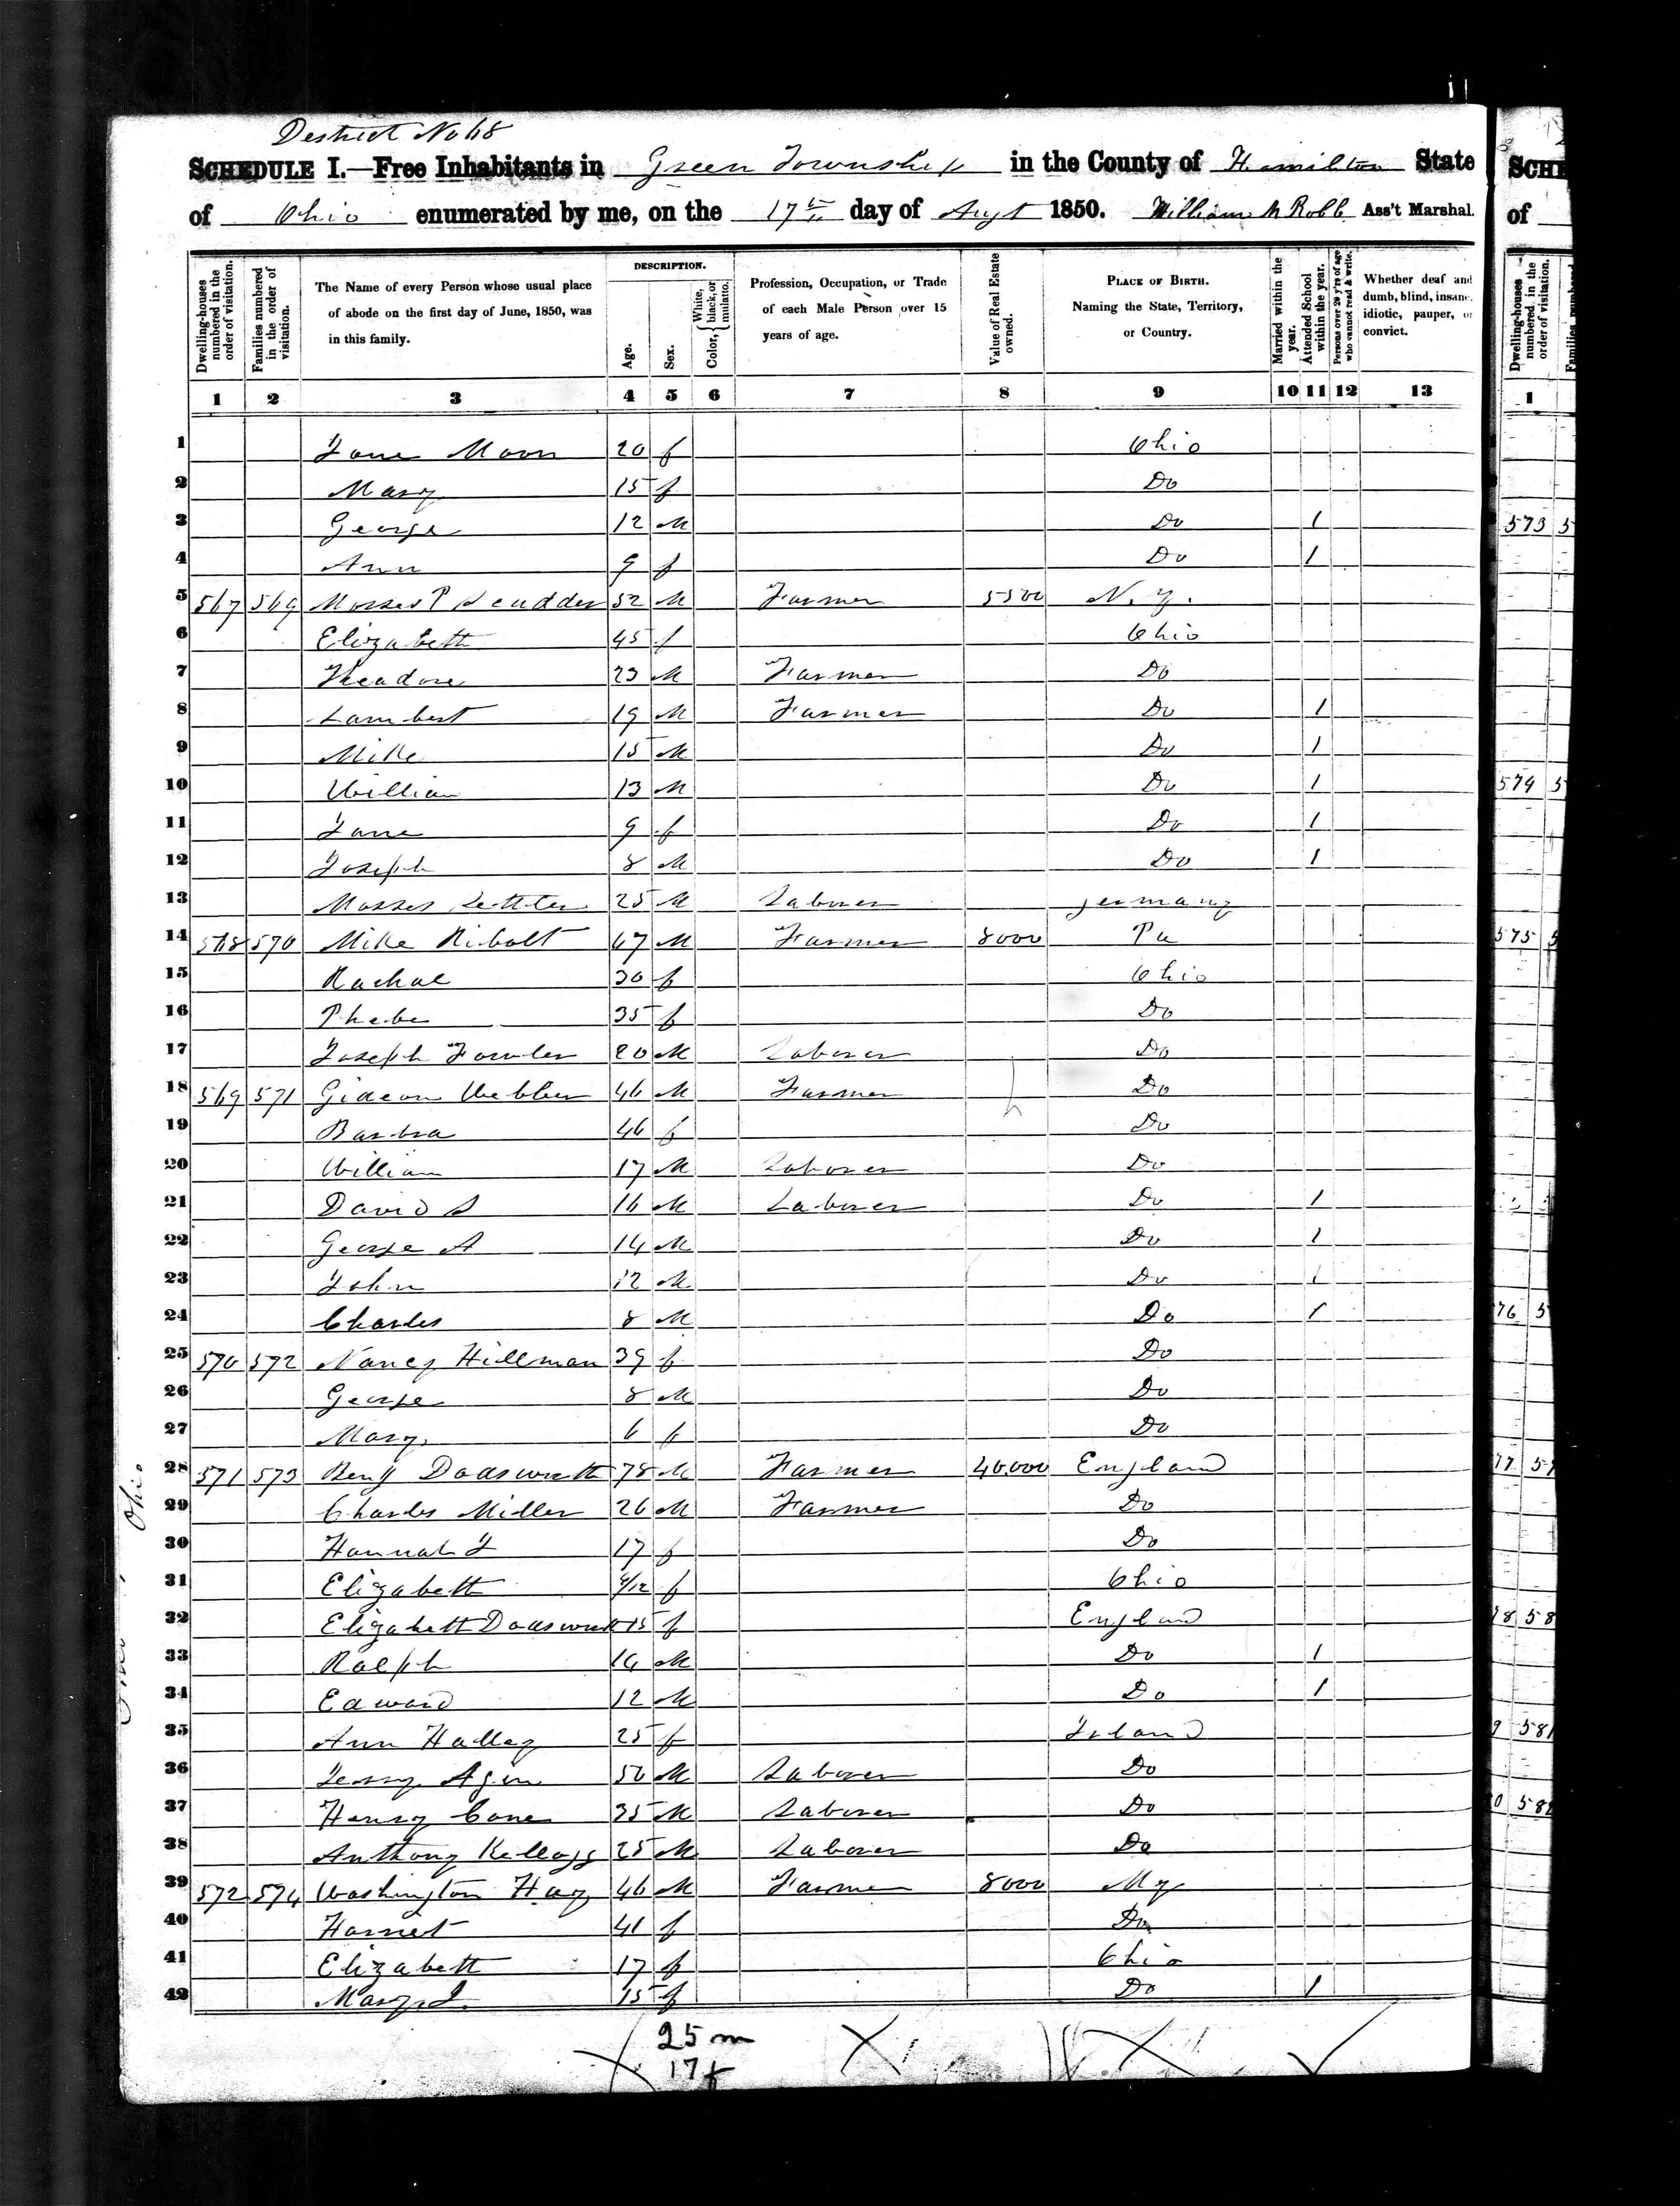 District No 68
SCHEDULE I.—Free Inhabitants in Green Township in the County of Hamilton State
of Ohio enumerated by me, on the 17th day of Augt 1850. William M Robb Ass't Marshal.
Dwelling-houses numbered in the order of visitation.
Families numbered in the order of visitation.
The Name of every Person whose usual place of abode on the first day of June, 1850, was in this family.
DESCRIPTION.
Age.
Sex.
Color, { White, black, or mulatto.
Profession, Occupation, or Trade of each Male Person over 15 years of age.
Value of Real Estate owned.
PLACE OF BIRTH. Naming the State, Territory, or Country.
Married within the year.
Attended School within the year.
Persons over 20 y'rs of age who cannot read & write.
Whether deaf and dumb, blind, insane, idiotic, pauper, or convict.
1 2 3 4 5 6 7 8 9 10 11 12 13
1 Jane Moon 20 f Ohio
2 Mary 15 f Do
3 George 12 M Do 1
4 Ann 9 f Do 1
5 567 569 Mosses P Scudder 52 M Farmer 5500 N.Y.
6 Elizabeth 45 f Ohio
7 Theadore 23 M Farmer Do
8 Lambert 19 M Farmer Do 1
9 Mike 15 M Do 1
10 William 13 M Do 1
11 Jane 9 f Do 1
12 Joseph 8 M Do 1
13 Mosses 25 M Laborer Germany
14 568 570 Mike Ribolt 67 M Farmer 8000 Pa
15 Rachal 30 f Ohio
16 Phebe 35 f Do
17 Joseph Fowler 20 M Laborer Do
18 569 571 Gideon Webber 46 M Farmer Do
19 Barbra 46 f Do
20 William 17 M Laborer Do
21 David S 16 M Laborer Do 1
22 George A 14 M Do 1
23 John 12 M Do 1
24 Charles 8 M Do 1
25 570 572 Nancy Hillman 39 f Do
26 George 8 M Do
27 Mary 6 f Do
28 571 573 Benj Dodsworth 78 M Farmer 40,000 England
29 Charles Miller 26 M Farmer Do
30 Hannah J 17 f Do
31 Elizabeth 4/12 f Ohio
32 Elizabeth Dodsworth 15 f England
33 Ralph 14 M Do 1
34 Edward 12 M Do 1
35 Ann Halley 25 f Irland
36 Agin 50 M Laborer Do
37 Henry Cone 35 M Laborer Do
38 Anthony Kellogg 25 M Laborer Do
39 572 574 Washington Hay 46 M Farmer 8000 My
40 Harriet 41 f Do
41 Elizabeth 17 f Ohio
42 Mary J. 15 f Do 1
25 m
17 f
Ohio
SCHE
of
Dwelling-houses numbered in the order of visitation.
1
573 5
574 5
575 5
76 5
77 57
78 58
9 581
0 582